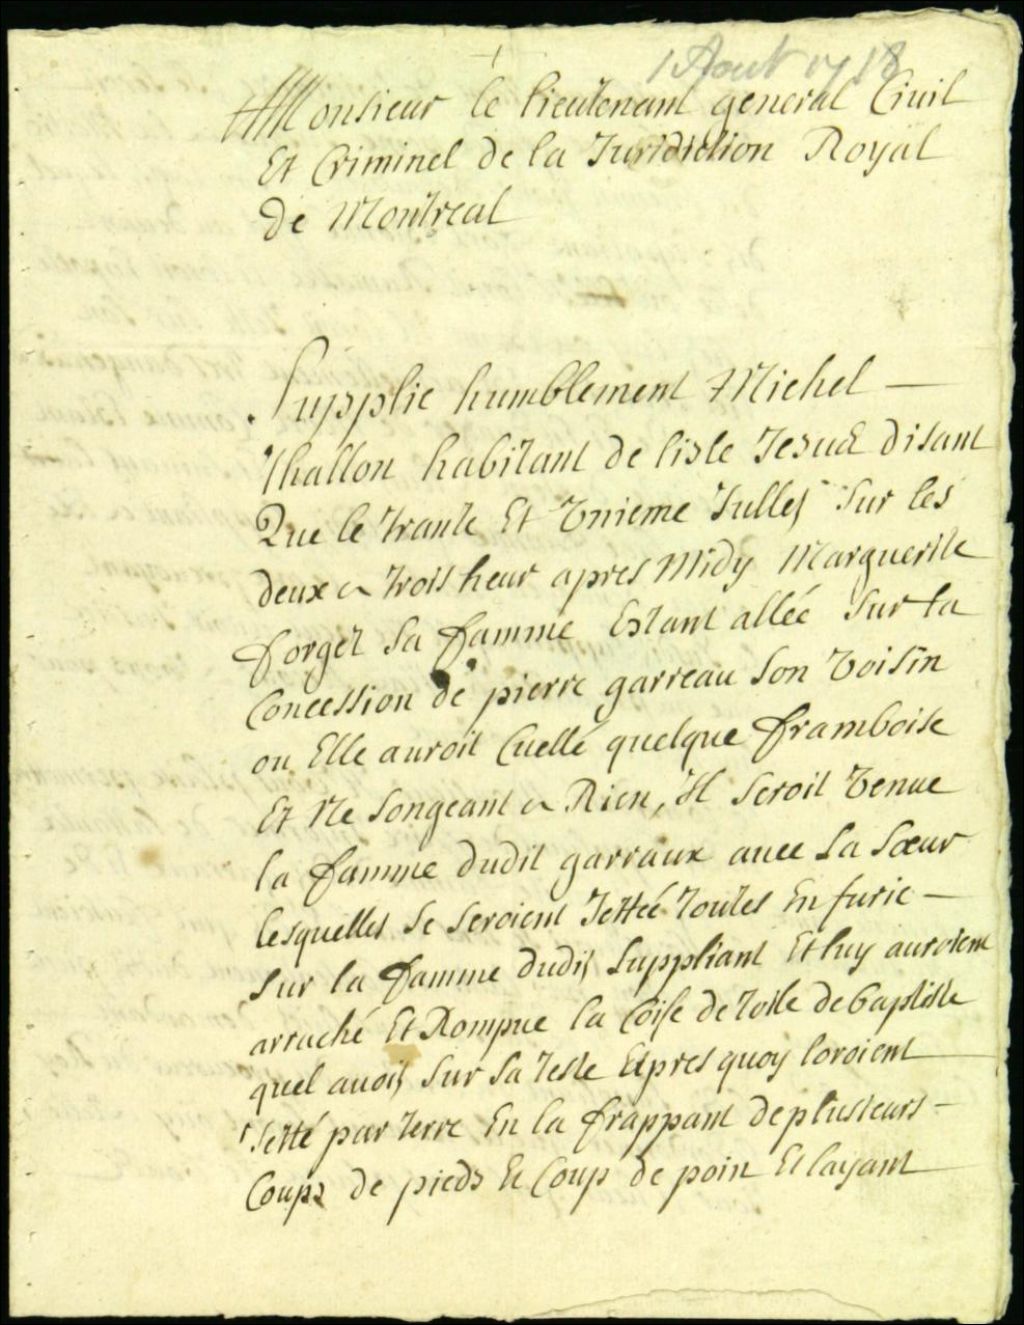 1 Aout 1718
A Monsieur le lieutenant general Civil
Et Criminel de la Juridiction Royal
de Montreal
Supplie humblement Michel —
Challon habitant de lisle Jesus disant
Que le trante Et Unieme Jullet sur les
deux a trois heur apres Midy Marguerite
forget sa famme Estant alleé sur la
Concession de pierre garreau son voisin
ou Elle auroit Cuellé quelque framboise
Et Ne songeant a Rien, Il seroit venue
la famme dudit garraux avec sa sœur
lesquelles se seroient Jetteé toutes En furie —
sur la famme dudit suppliant Et luy auroient
arraché Et Rompue la Coife de toile de baptiste
quel avoit sur sa teste Apres quoy loroient
Jetté par terre En la frappant de plusieurs —
Coups de pieds Et Coup de poin Et layant